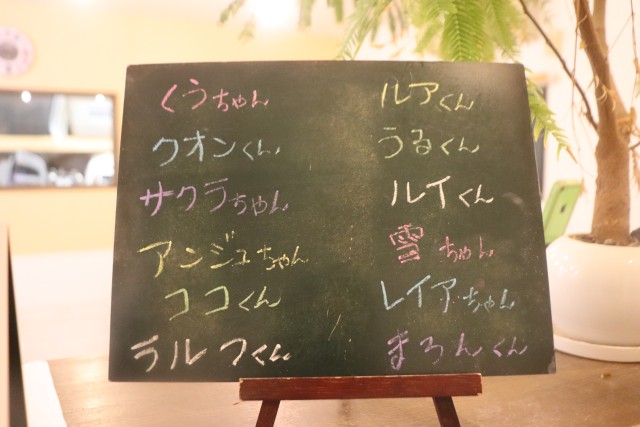 くうちゃん
クオンくん
サクラちゃん
アンジュちゃん
ココくん
ラルフくん
ルアくん
うるくん
ルイくん
雪ちゃん
レイアちゃん
まろんくん